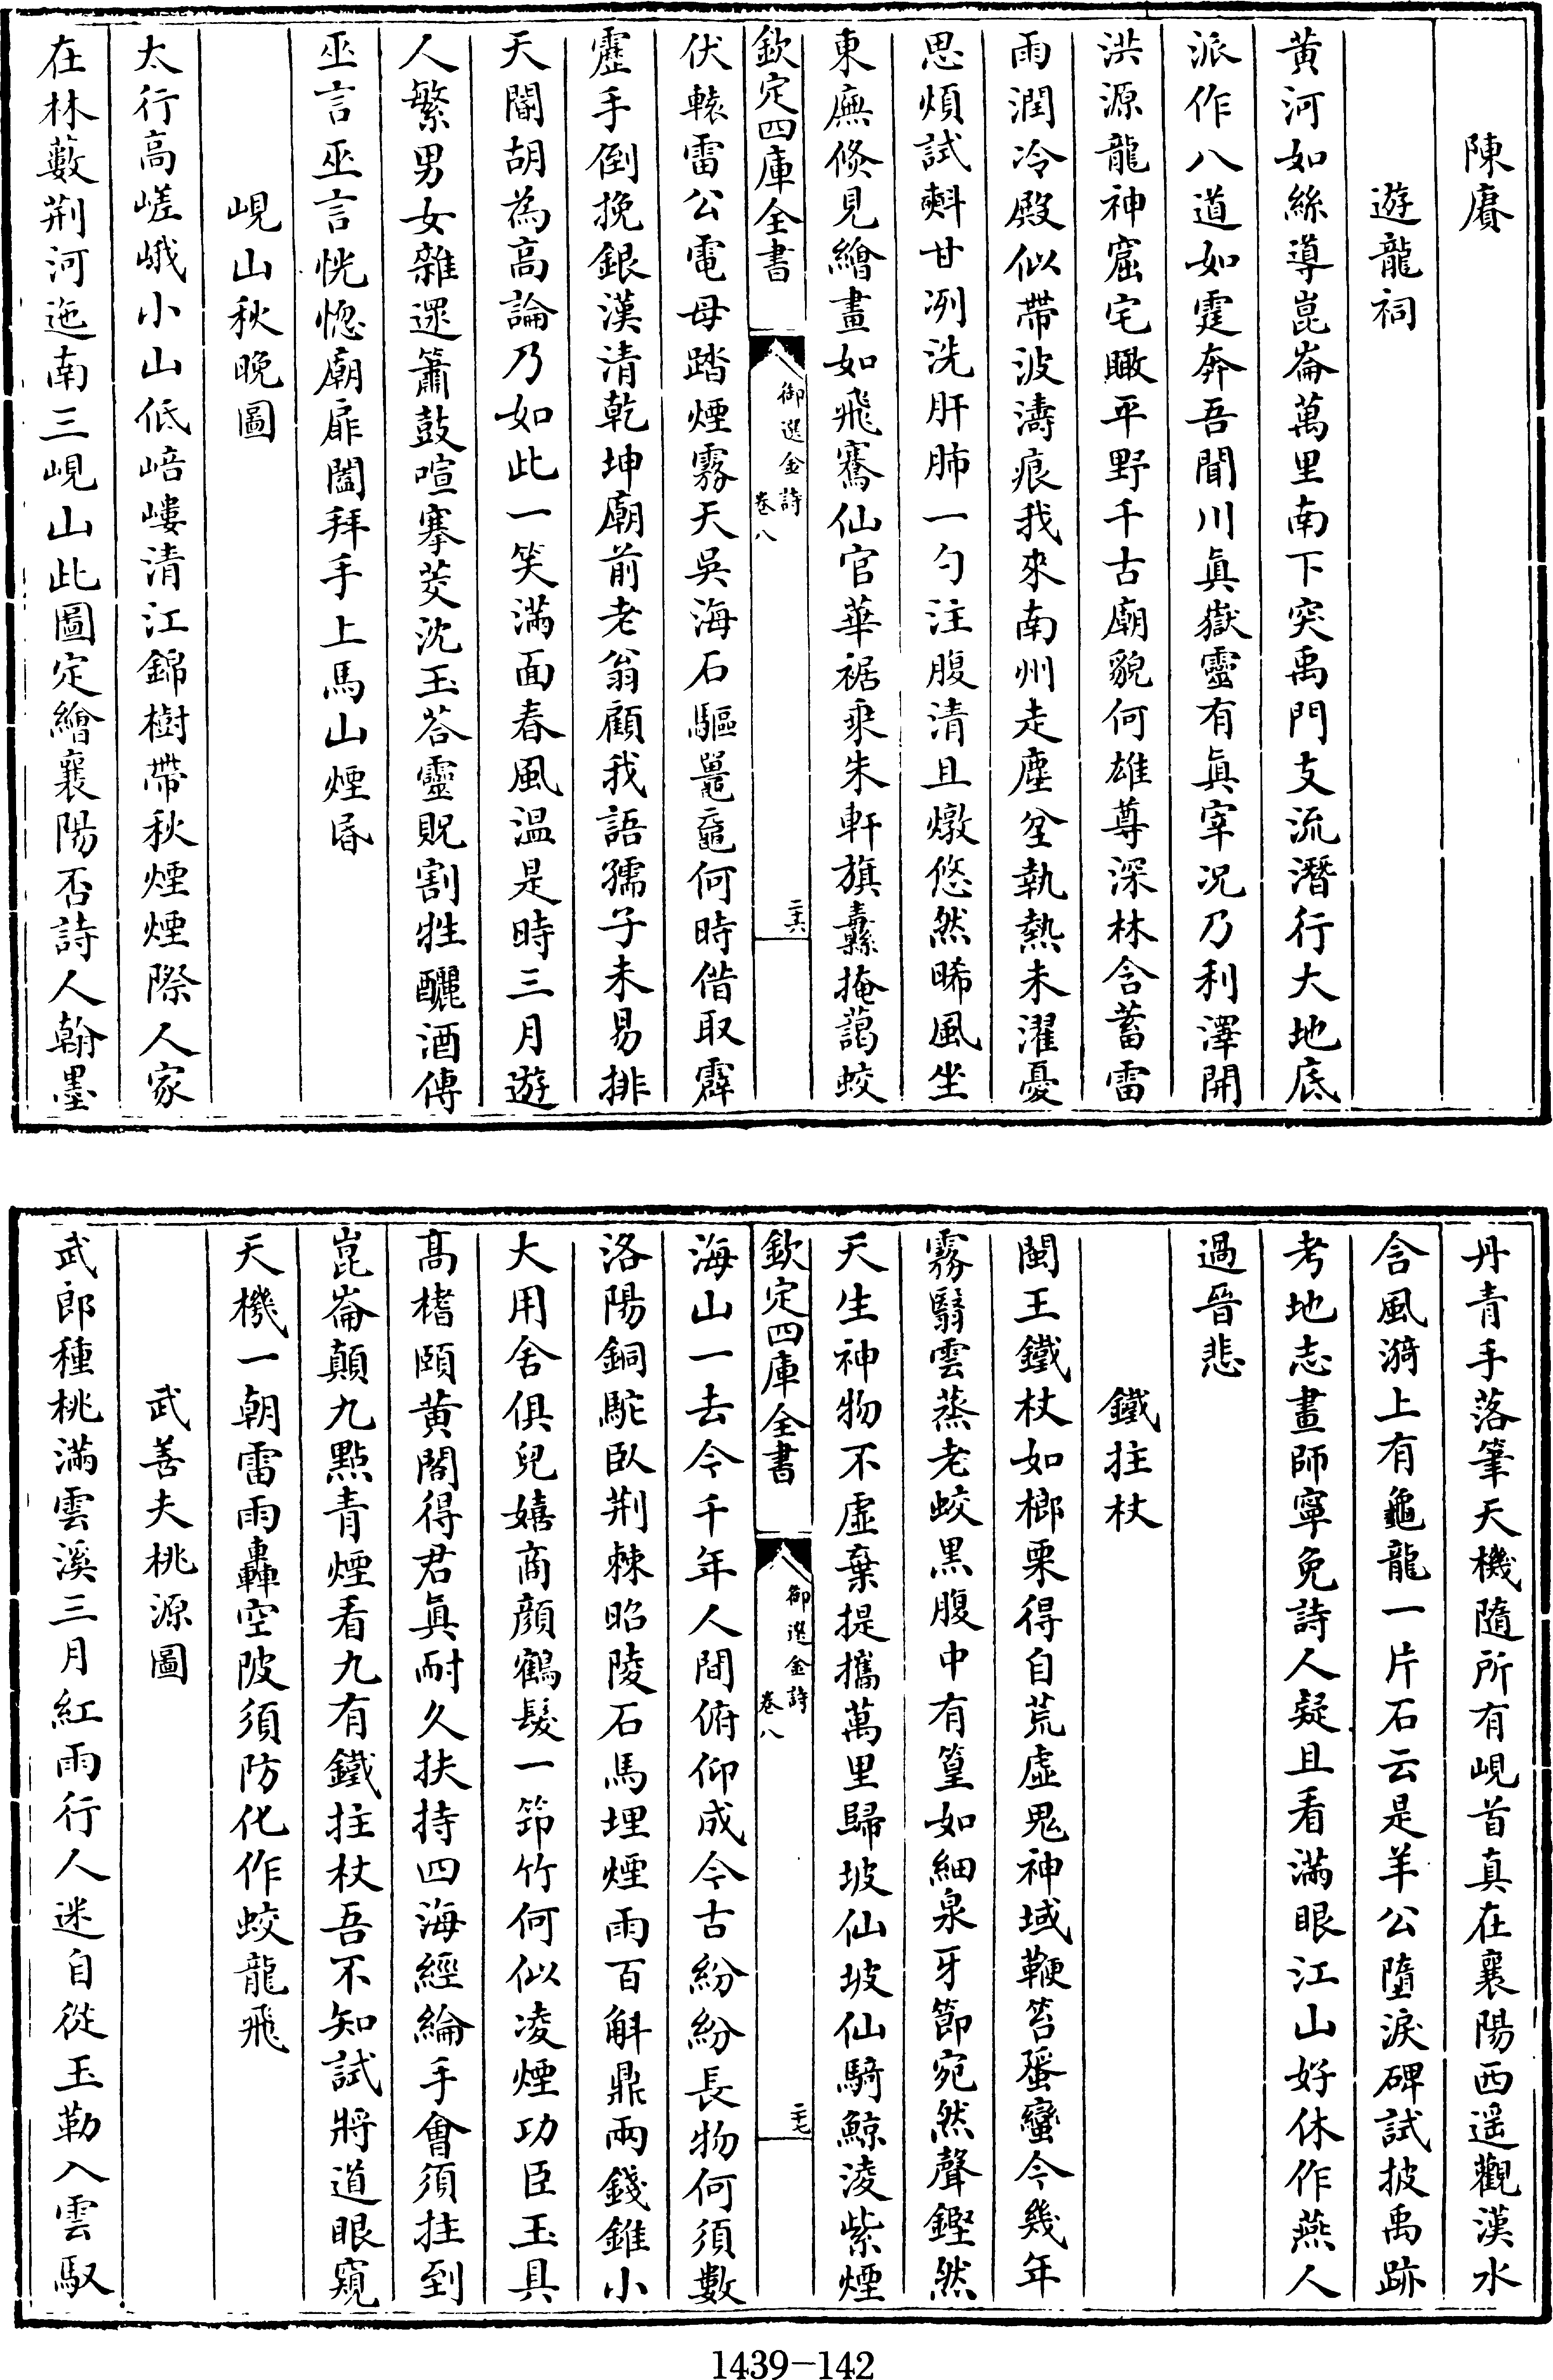 陳賡
遊龍祠
黃河如絲導崑崙萬里南下突禹門支流潛行大地底
派作八道如霆奔吾聞川眞嶽靈有眞宰况乃利澤開
洪源龍神窟宅瞰平野千古廟貌何雄尊深林含蓄雷
雨潤冷殿似帶波濤痕我來南州走塵坌執熱未濯憂
思煩試㪺甘冽洗肝肺一勺注腹清且燉悠然晞風坐
東廡倐見繪畫如飛騫仙官華裾乘朱軒旗纛掩藹蛟
欽定四庫全書
御選金詩
卷八
二十六
伏轅雷公電母踏煙霧天吳海石驅鼉黿何時借取霹
靂手倒挽銀漢清乾坤廟前老翁顧我語孺子未易排
天閽胡為高論乃如此一笑滿面春風温是時三月遊
人繁男女雜遝簫鼓喧搴茭沈玉荅靈貺割牲釃酒傳
巫言巫言恍惚廟扉闔拜手上馬山煙昏
峴山秋晚圖
太行高嵯峨小山低㟝嶁清江錦樹帶秋煙煙際人家
在林藪荆河迤南三峴山此圖定繪襄陽否詩人翰墨
丹青手落筆天機隨所有峴首真在襄陽西遥觀漢水
含風漪上有龜龍一片石云是羊公墮淚碑試披禹跡
考地志畫師寧免詩人疑且看滿眼江山好休作燕人
過晉悲
鐵拄杖
閩王鐵杖如榔栗得自荒虛鬼神域鞭笞蜑蠻今幾年
霧翳雲蒸老蛟黑腹中有篁如細泉牙節宛然聲鏗然
天生神物不虛棄提攜萬里歸坡仙坡仙騎鯨淩紫煙
欽定四庫全書
御選金詩
卷八
二十七
海山一去今千年人間俯仰成今古紛紛長物何須數
洛陽銅駝臥荆棘昭陵石馬埋煙雨百斛鼎兩錢錐小
大用舍俱兒嬉商顔鶴髮一笻竹何似凌煙功臣玉具
高㮶頤黃閣得君眞耐久扶持四海經綸手會須拄到
崑崙顛九點青煙看九有鐵拄杖吾不知試將道眼窺
天機一朝雷雨轟空陂須防化作蛟龍飛
武善夫桃源圖
武郎種桃滿雲溪三月紅雨行人迷自從玉勒入雲馭
1439-142